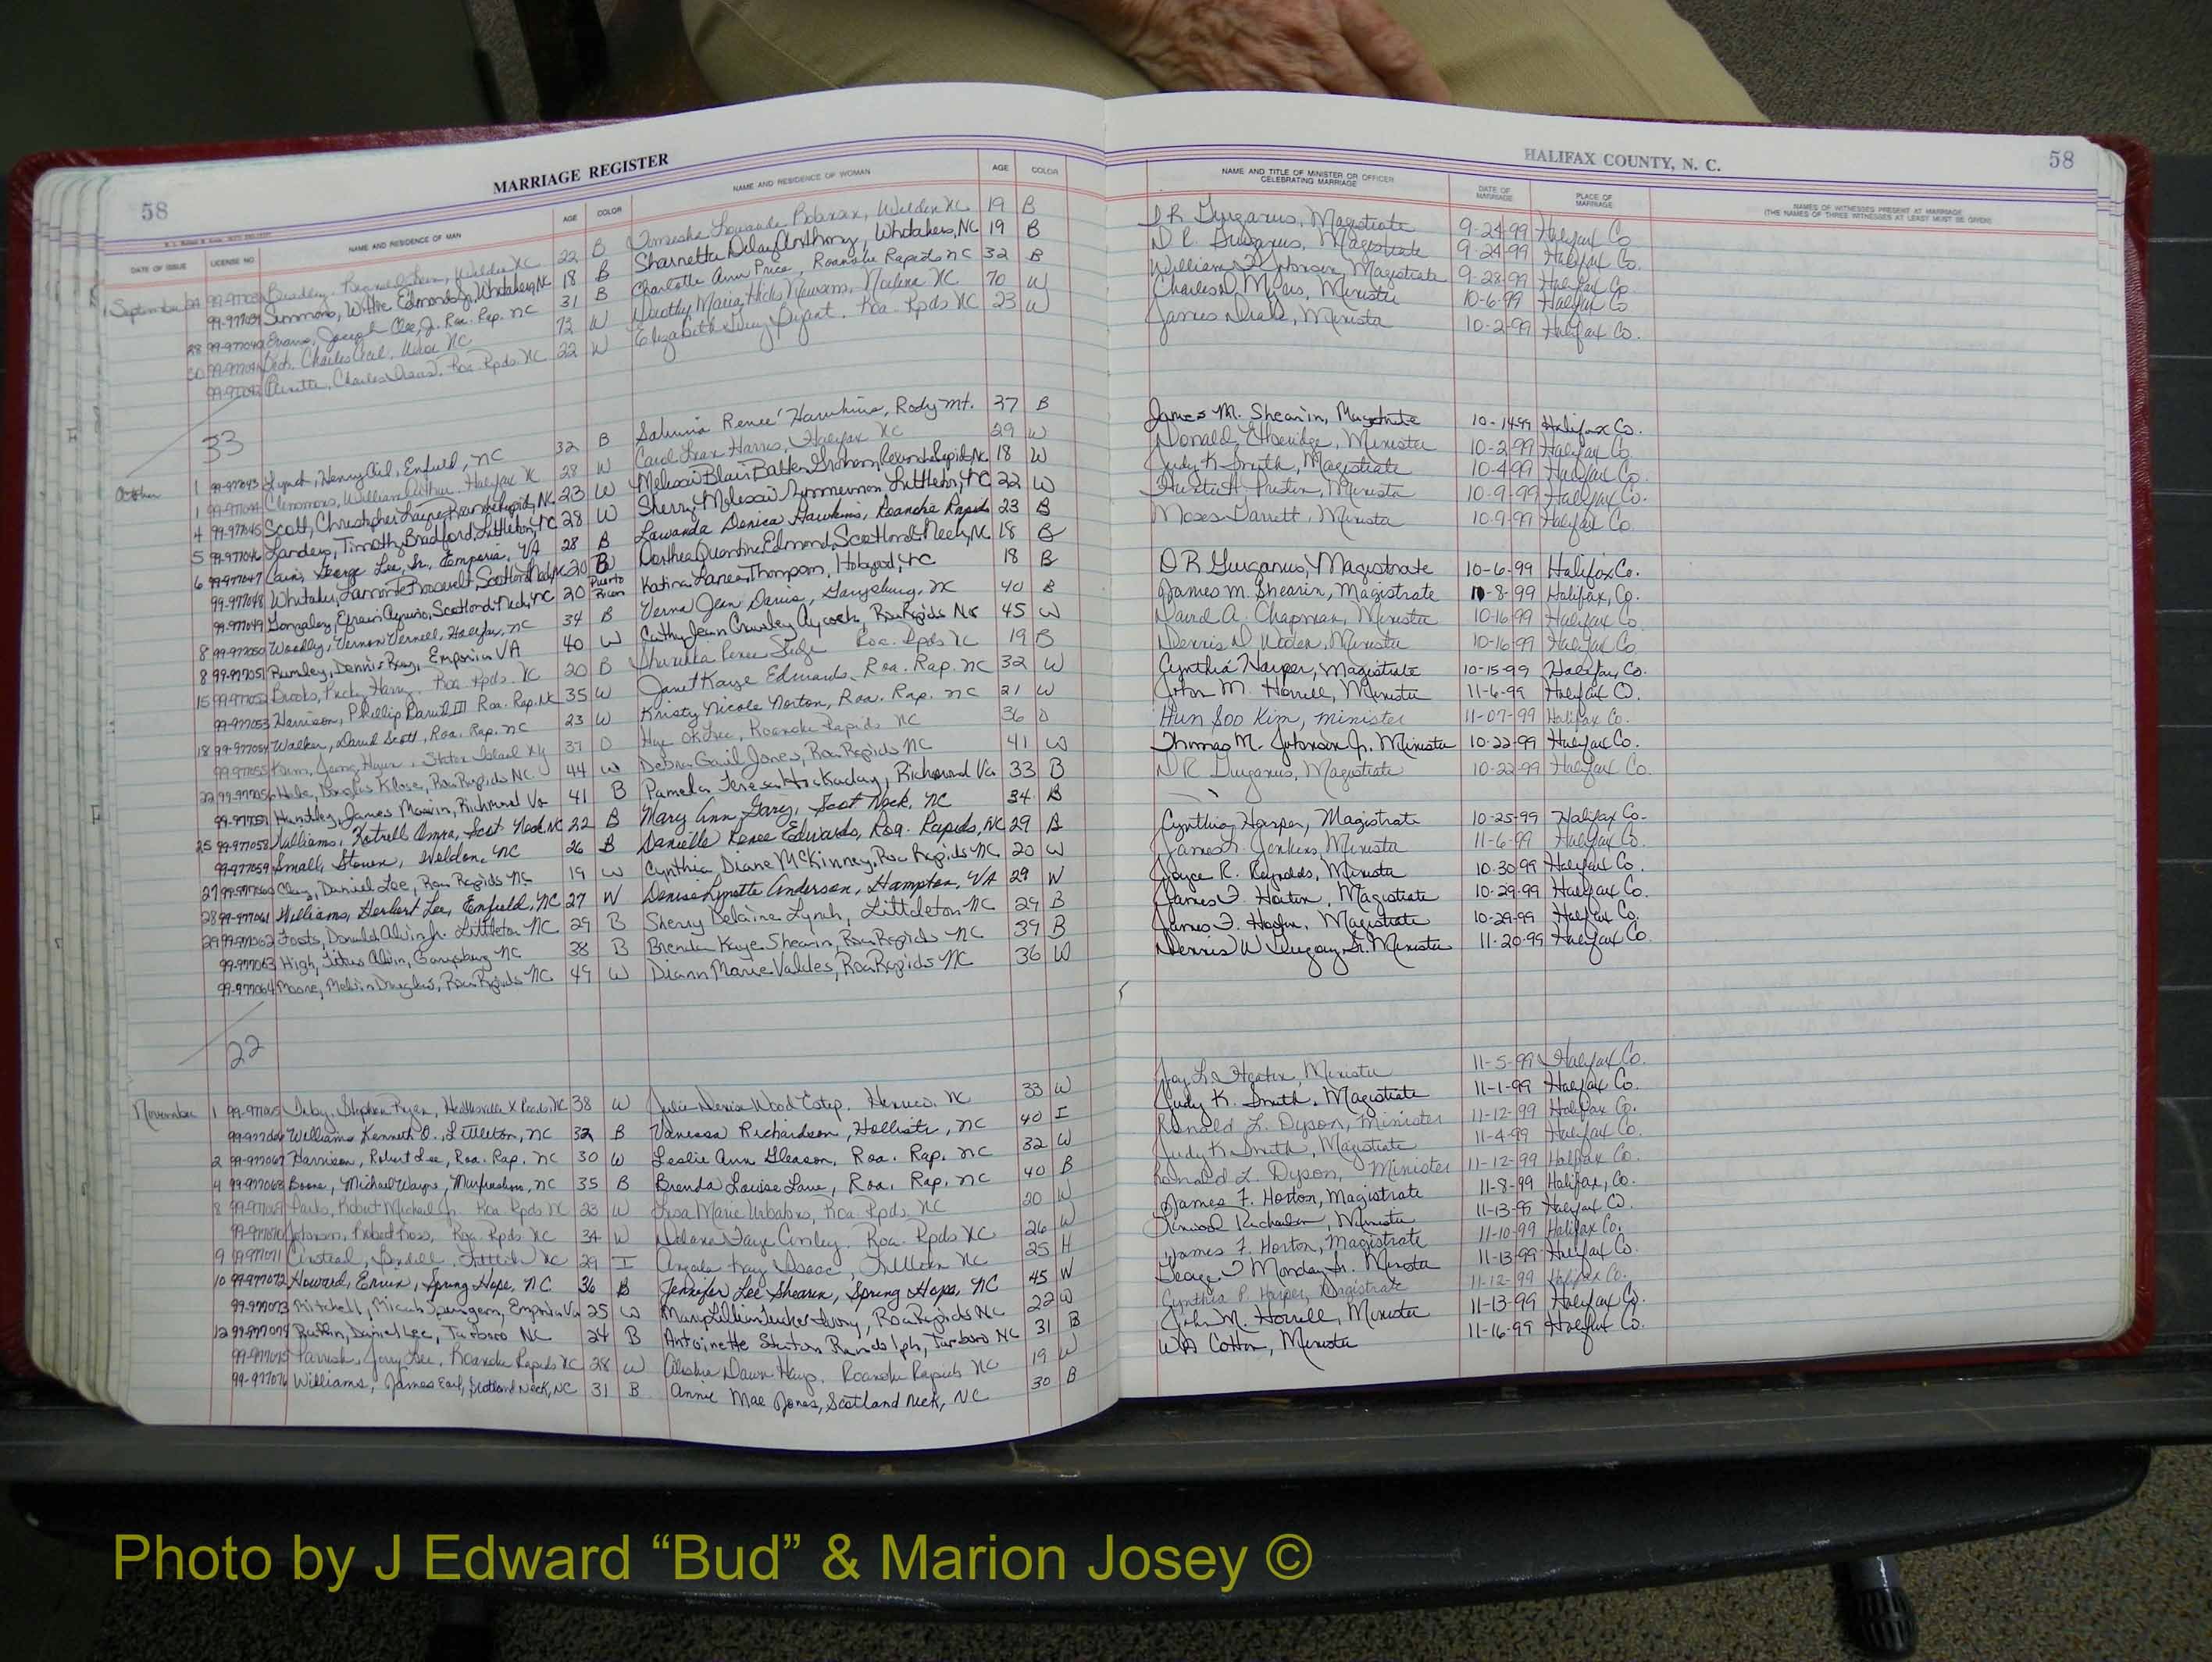 MARRIAGE REGISTER
HALIFAX COUNTY, N. C.
58
58
DATE OF ISSUE LICENSE NO NAME AND RESIDENCE OF MAN AGE COLOR NAME AND RESIDENCE OF WOMAN AGE COLOR
NAME AND TITLE OF MINISTER OR OFFICER CELEBRATING MARRIAGE DATE OF MARRIAGE PLACE OF MARRIAGE NAMES OF WITNESSES PRESENT AT MARRIAGE (THE NAMES OF THREE WITNESSES AT LEAST MUST BE GIVEN)
September 22 B Robinson, Weldon NC 19 B Magistrate 9-24-99 Halifax Co
Simmons, Willie Edmond Whitakers, NC 18 B Sharnetta Anthony, Whitakers, NC 19 B Magistrate 9-24-99 Halifax Co.
28 Evans, Joseph Roa. Rap. NC 31 B Charlotte Ann Price, Roanoke Rapids NC 32 B William Johnson, Magistrate 9-28-99 Halifax Co
Charles Cecil NC 72 W Dorothy Maria Hicks 70 W Charles Minister 10-6-99 Halifax Co
Charles Roa. Rpds. NC 22 W Elizabeth Roa. Rpds NC 23 W James Drake, Minister 10-2-99 Halifax Co.
33
October 1 99-977043 Lynch, Henry Enfield, NC 32 B Sabrina Renee' Hawkins, Rocky Mt. 37 B James M. Shearin, Magistrate 10-14-99 Halifax Co.
1 Clemmons, William Arthur Halifax NC 28 W Carol Harris, Halifax NC 29 W Donald Etheridge, Minister 10-2-99 Halifax Co.
4 99-977045 Scott, Christopher Layne Roanoke Rapids, NC 23 W Melissa Blair 18 W Judy K Smith, Magistrate 10-4-99 Halifax Co.
5 99-977046 Landers, Timothy Bradford, Littleton, NC 28 W Sherry Melissa Zimmerman Littleton, NC 22 W Minister 10-9-99 Halifax Co.
6 99-977047 Cain, George Lee, Sr., Emporia, VA 28 B Lawanda Denica Hawkins, Roanoke Rapids 23 B Moses Garrett, Minister 10-9-99 Halifax Co.
99-977048 Whitaker, Lamonte Roosevelt, Scotland Neck, NC 20 B Dorthea Quantine Edmond, Scotland Neck, NC 18 B D R Gurganus, Magistrate 10-6-99 Halifax Co.
99-977049 Gonzalez, Efrain Scotland Neck, NC 20 Puerto Rican Katina Lanea Thompson, Hobgood, NC 18 B James M. Shearin, Magistrate 10-8-99 Halifax, Co.
8 99-977050 Woodley, Vernon Vernell, Halifax, NC 34 B Verna Jean Davis, Garysburg, NC 40 B David A. Chapman, Minister 10-16-99 Halifax Co
8 99-977051 Rumley, Dennis Ray, Emporia VA 40 W Cathy Jean Crawley Aycock, Roa Rapids NC 45 W Dennis Minister 10-16-99 Halifax Co
15 99-977052 Brooks, Ricky Harry Roa. Rpds. NC 20 B Renee Roa. Rpds NC 19 B Cynthia Harper, Magistrate 10-15-99 Halifax, Co.
99-977053 Harrison, Phillip David III Roa. Rap. NC 35 W Janet Kaye Edwards, Roa. Rap. NC 32 W John M. Horrell, Minister 11-6-99 Halifax Co.
18 99-977054 Walker, David Scott, Roa. Rap. NC 23 W Kristy Nicole Norton, Roa. Rap. NC 21 W Hun Soo Kim, minister 11-07-99 Halifax Co.
99-977055 Staten Island NY 37 O Roanoke Rapids NC 36 O Thomas M. Johnson Jr. Minister 10-22-99 Halifax Co.
22 99-977056 Hale, Douglas Klose, Roa Rapids NC 44 W Debra Gail Jones, Roa Rapids NC 41 W D R Gurganus, Magistrate 10-22-99 Halifax Co.
99-977057 Huntley, James Marvin, Richmond Va 41 B Pamela Teresa Hockaday, Richmond Va 33 B
25 99-977058 Williams, Scot. Neck, NC 22 B Mary Ann Gary, Scot. Neck, NC 34 B Cynthia Harper, Magistrate 10-25-99 Halifax Co.
99-977059 Small, Steven, Weldon, NC 26 B Danielle Renee Edwards, Roa. Rapids, NC 29 B James Jenkins, Minister 11-6-99 Halifax Co.
27 99-977060 Clay, Daniel Lee, Roa Rapids NC 19 W Cynthia Diane McKinney, Roa Rapids NC 20 W Joyce R. Reynolds, Minister 10-30-99 Halifax Co.
28 99-977061 Williams, Herbert Lee, Enfield, NC 27 W Denise Lynette Anderson, Hampton, VA 29 W James F. Horton, Magistrate 10-29-99 Halifax Co.
29 99-977062 Donald Alvin Jr. Littleton NC 29 B Sherry Delaine Lynch, Littleton NC 29 B James F. Horton, Magistrate 10-29-99 Halifax Co.
99-977063 High, Titus Alvin, Garysburg NC 38 B Brenda Kaye Shearin, Roa Rapids NC 39 B Dennis W Minister 11-20-99 Halifax Co.
99-977064 Moore, Melvin Douglas, Roa Rapids NC 49 W Diann Marie Valdes, Roa Rapids NC 36 W
22
November 1 Stephen 38 W Julie Denise Wood Estep 33 W Minister 11-5-99 Halifax Co.
99-977066 Williams Kenneth O., Littleton, NC 32 B Vanessa Richardson, Hollister, NC 40 I Judy K. Smith, Magistrate 11-1-99 Halifax Co.
2 99-977067 Harrison, Robert Lee, Roa. Rap. NC 30 W Leslie Ann Gleason, Roa. Rap. NC 32 W Ronald L. Dyson, Minister 11-12-99 Halifax Co.
4 99-977068 Boone, Michael Wayne, Murfreesboro, NC 35 B Brenda Louise Lane, Roa. Rap. NC 40 B Judy K Smith, Magistrate 11-4-99 Halifax Co.
8 99-977069 Parks, Robert Michael Jr. Roa Rpds NC 23 W Lisa Marie Roa. Rpds. NC 20 W Ronald L. Dyson, Minister 11-12-99 Halifax Co.
99-977070 Johnson, Robert Ross, Roa. Rpds NC 34 W Faye Roa. Rpds NC 26 W James F. Horton, Magistrate 11-8-99 Halifax, Co.
9 99-977071 NC 29 I Angela Kay Isaac, NC 25 H Richardson, Minister 11-13-99 Halifax Co
10 99-977072 Howard, Ervin, Spring Hope, NC 36 B Jennifer Lee Shearin, Spring Hope, NC 45 W James F. Horton, Magistrate 11-10-99 Halifax Co.
99-977073 Mitchell, Micah Spurgeon, Emporia Va 25 W Mary Lillian Tucker Ivory, Roa Rapids NC 22 W George Monday Sr. Minister 11-13-99 Halifax Co.
12 99-977074 Ruffin, Daniel Lee, Tarboro NC 24 B Antoinette Randolph, Tarboro NC 31 B Cynthia P. Harper, Magistrate 11-12-99 Halifax Co.
99-977075 Parrish, Jerry Lee, Roanoke Rapids NC 28 W Dawn Hays, Roanoke Rapids NC 19 W John M. Horrell, Minister 11-13-99 Halifax Co.
99-977076 Williams, James Earl, Scotland Neck, NC 31 B Annie Mae Jones, Scotland Neck, NC 30 B WA Cotton, Minister 11-16-99 Halifax Co.
Photo by J Edward “Bud” & Marion Josey ©